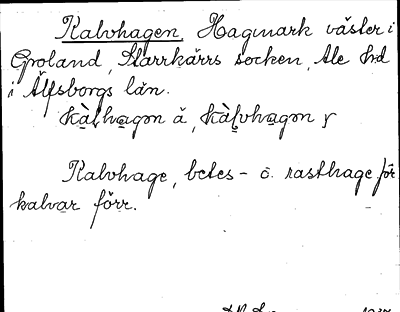 Kalvhagen, Hagmark väster i
Groland, Starrkärrs socken, Ale hd
i Älfsborgs län.
kàlhagən ä, kàlvhagən y
Kalvhage, betes- o. rasthage för
kalvar förr.